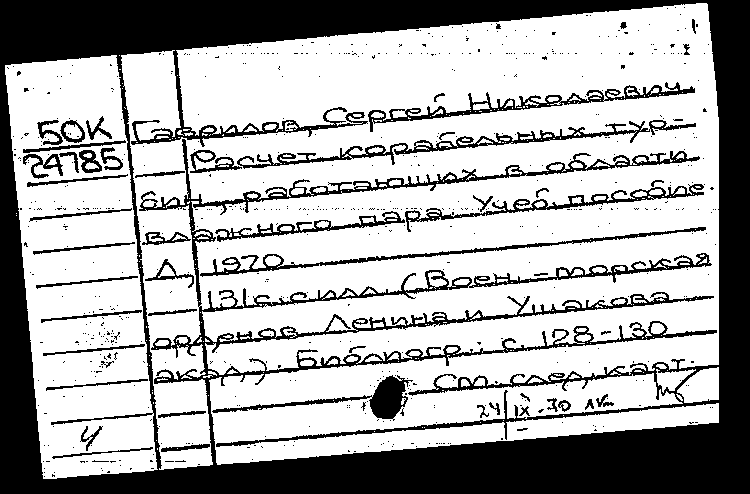 50К Гаврилов, Сергей Николаевич
24785 Расчет корабельных тур-
бин, работающих в области
влажного пара. Учеб. пособие.
Л., 1970.
131 с. с илл. (Воен.-морская
орденов Ленина и Ушакова
акад.). Библиогр.: с. 128-130
См. след. карт.
24/IX-70
4